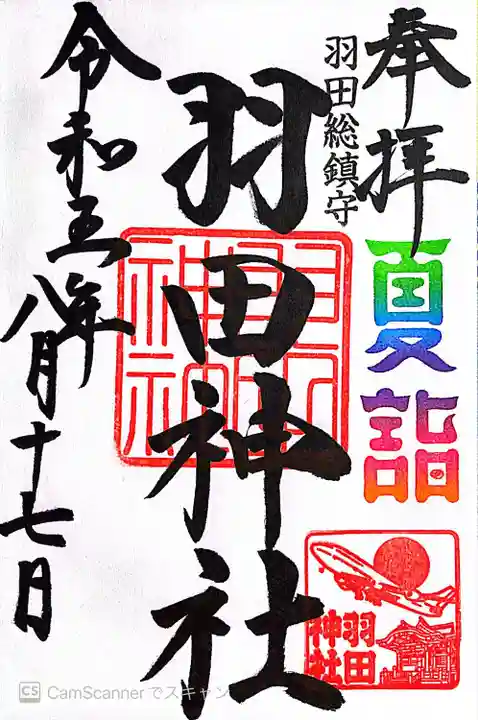 奉拝
夏詣
羽田総鎮守
羽田神社
羽田神社
羽田
神社
令和五年
八月十七日
CS CamScannerでスキャン